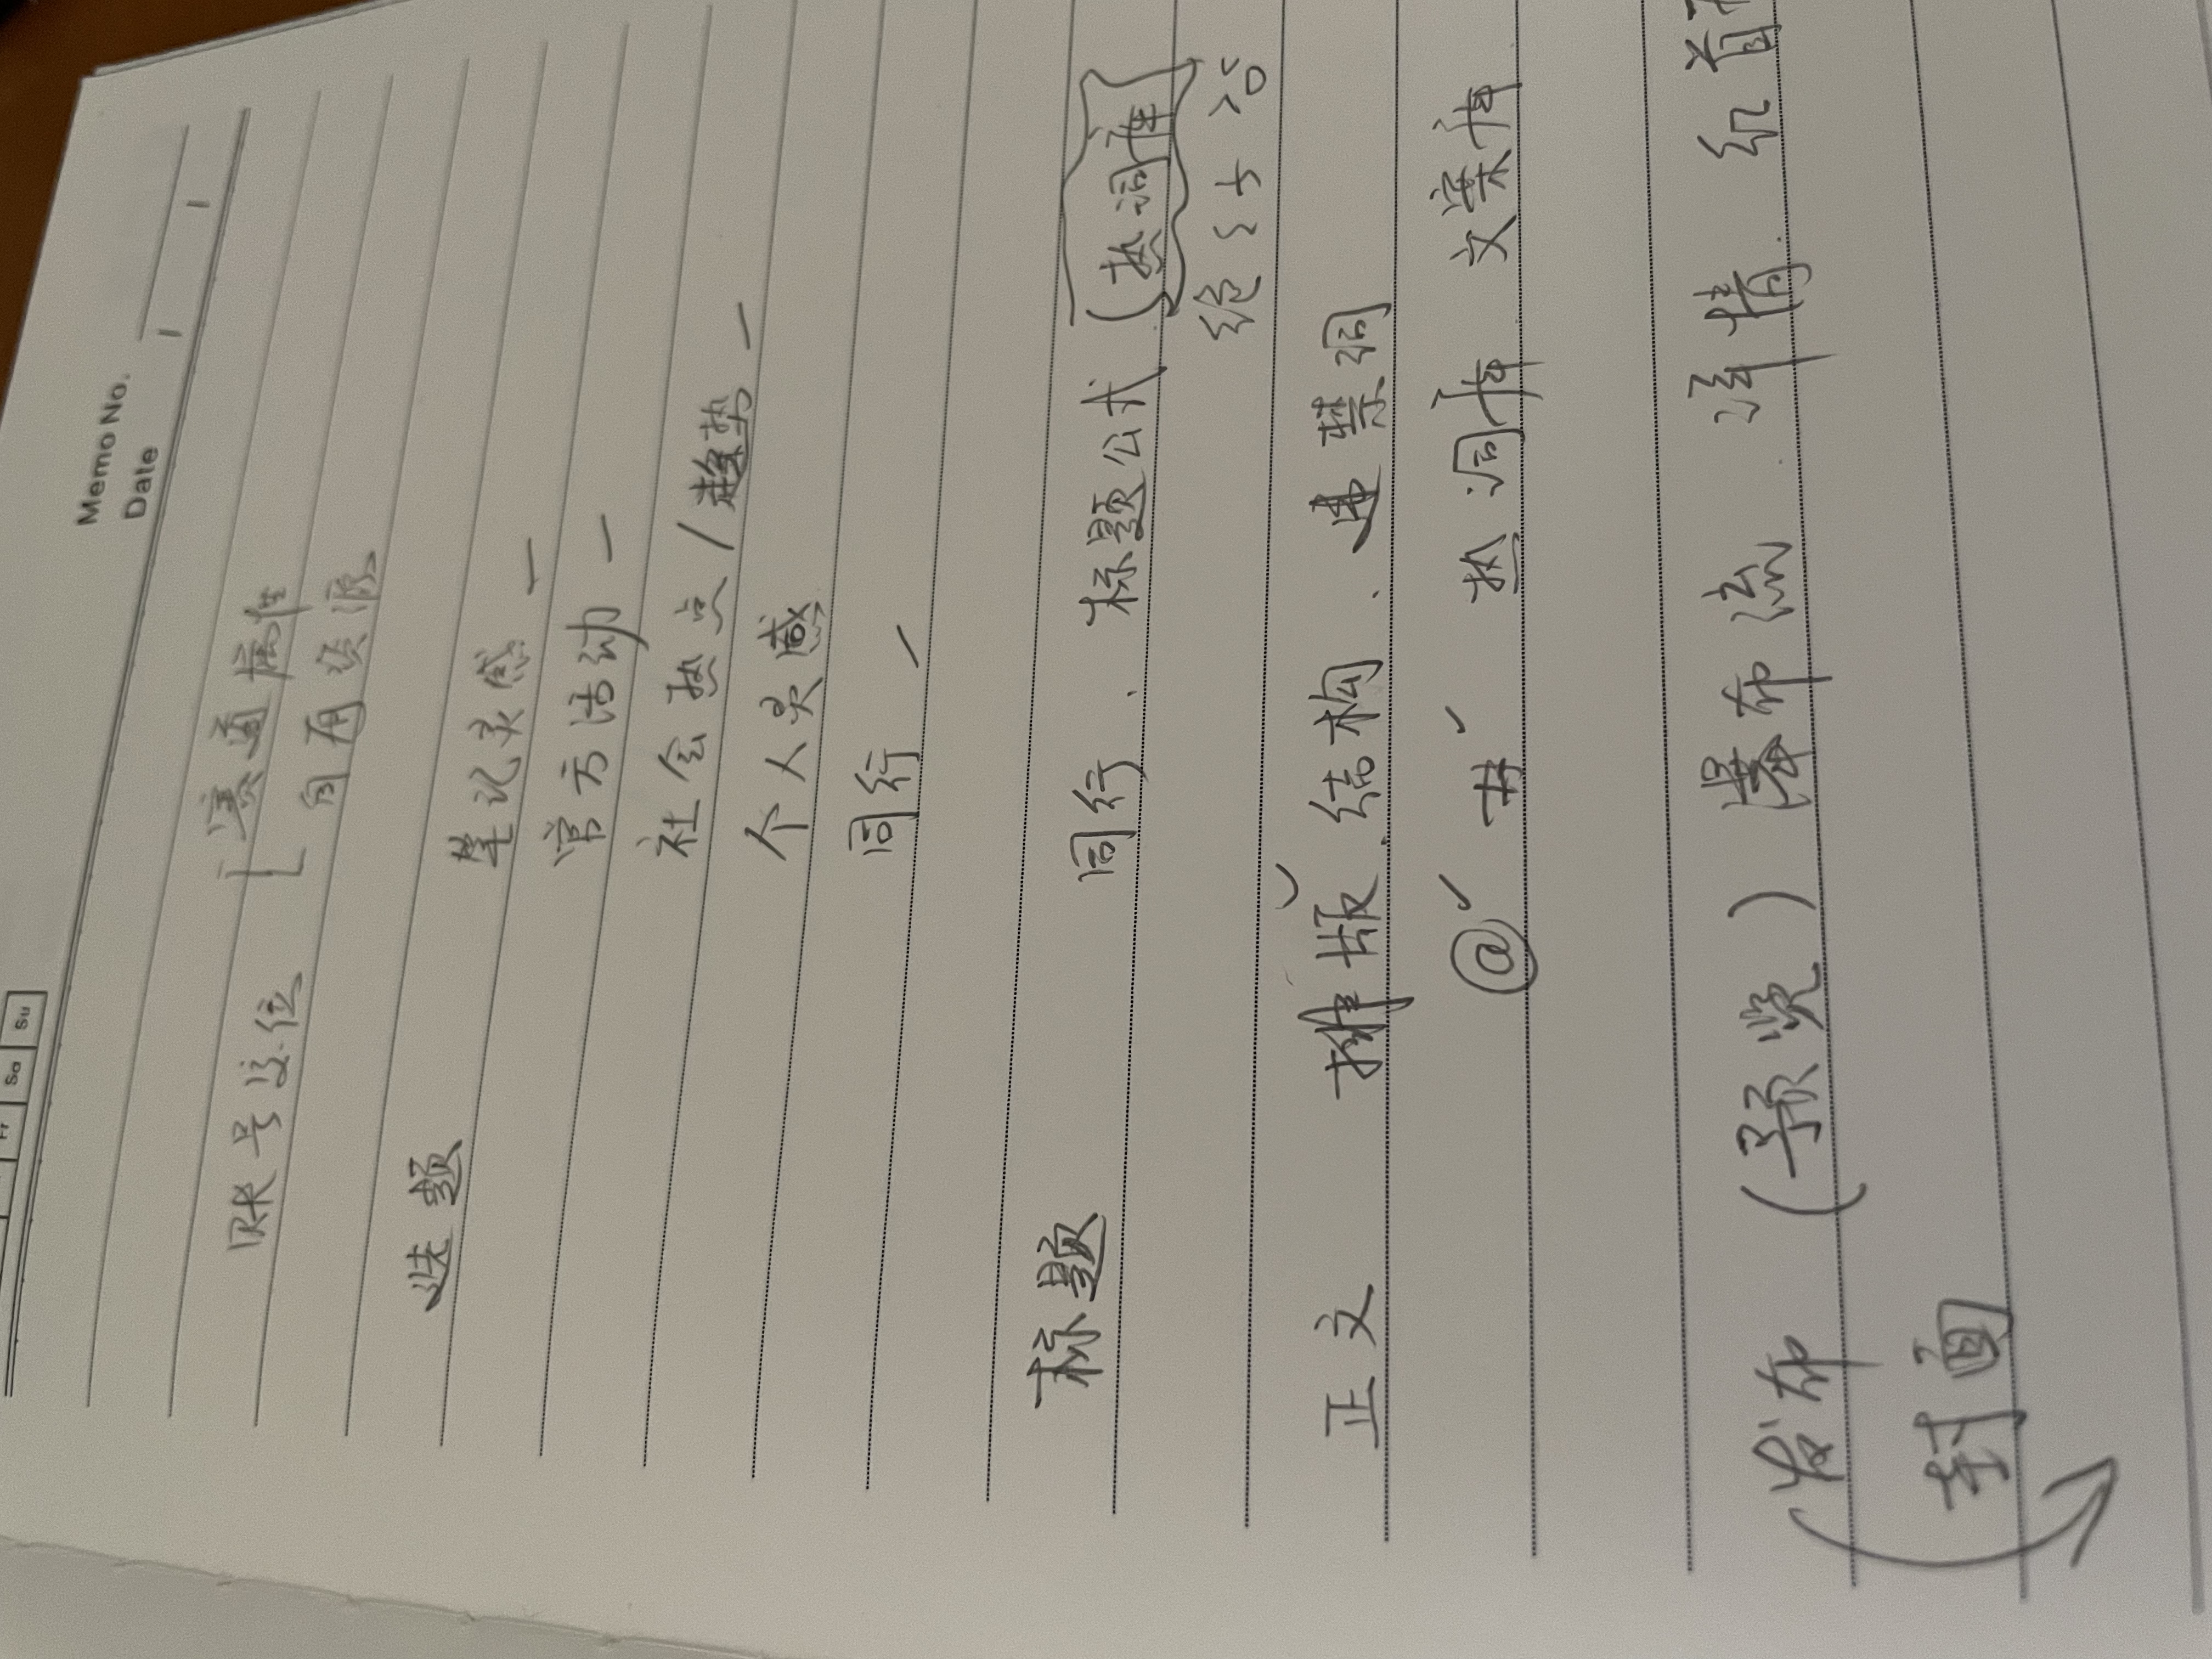 Memo No.
Date
Sa Su
赛道属性
账号定位
可用资源
选题 笔记灵感 —
官方活动 —
社会热点/趋势 —
个人灵感
同行 —
标题 同行. 标题公式 (热词库
正文 排版. 结构. 违禁词
@ # 热词库 文案库
发布 (预览) 瀑布流 详情
封面